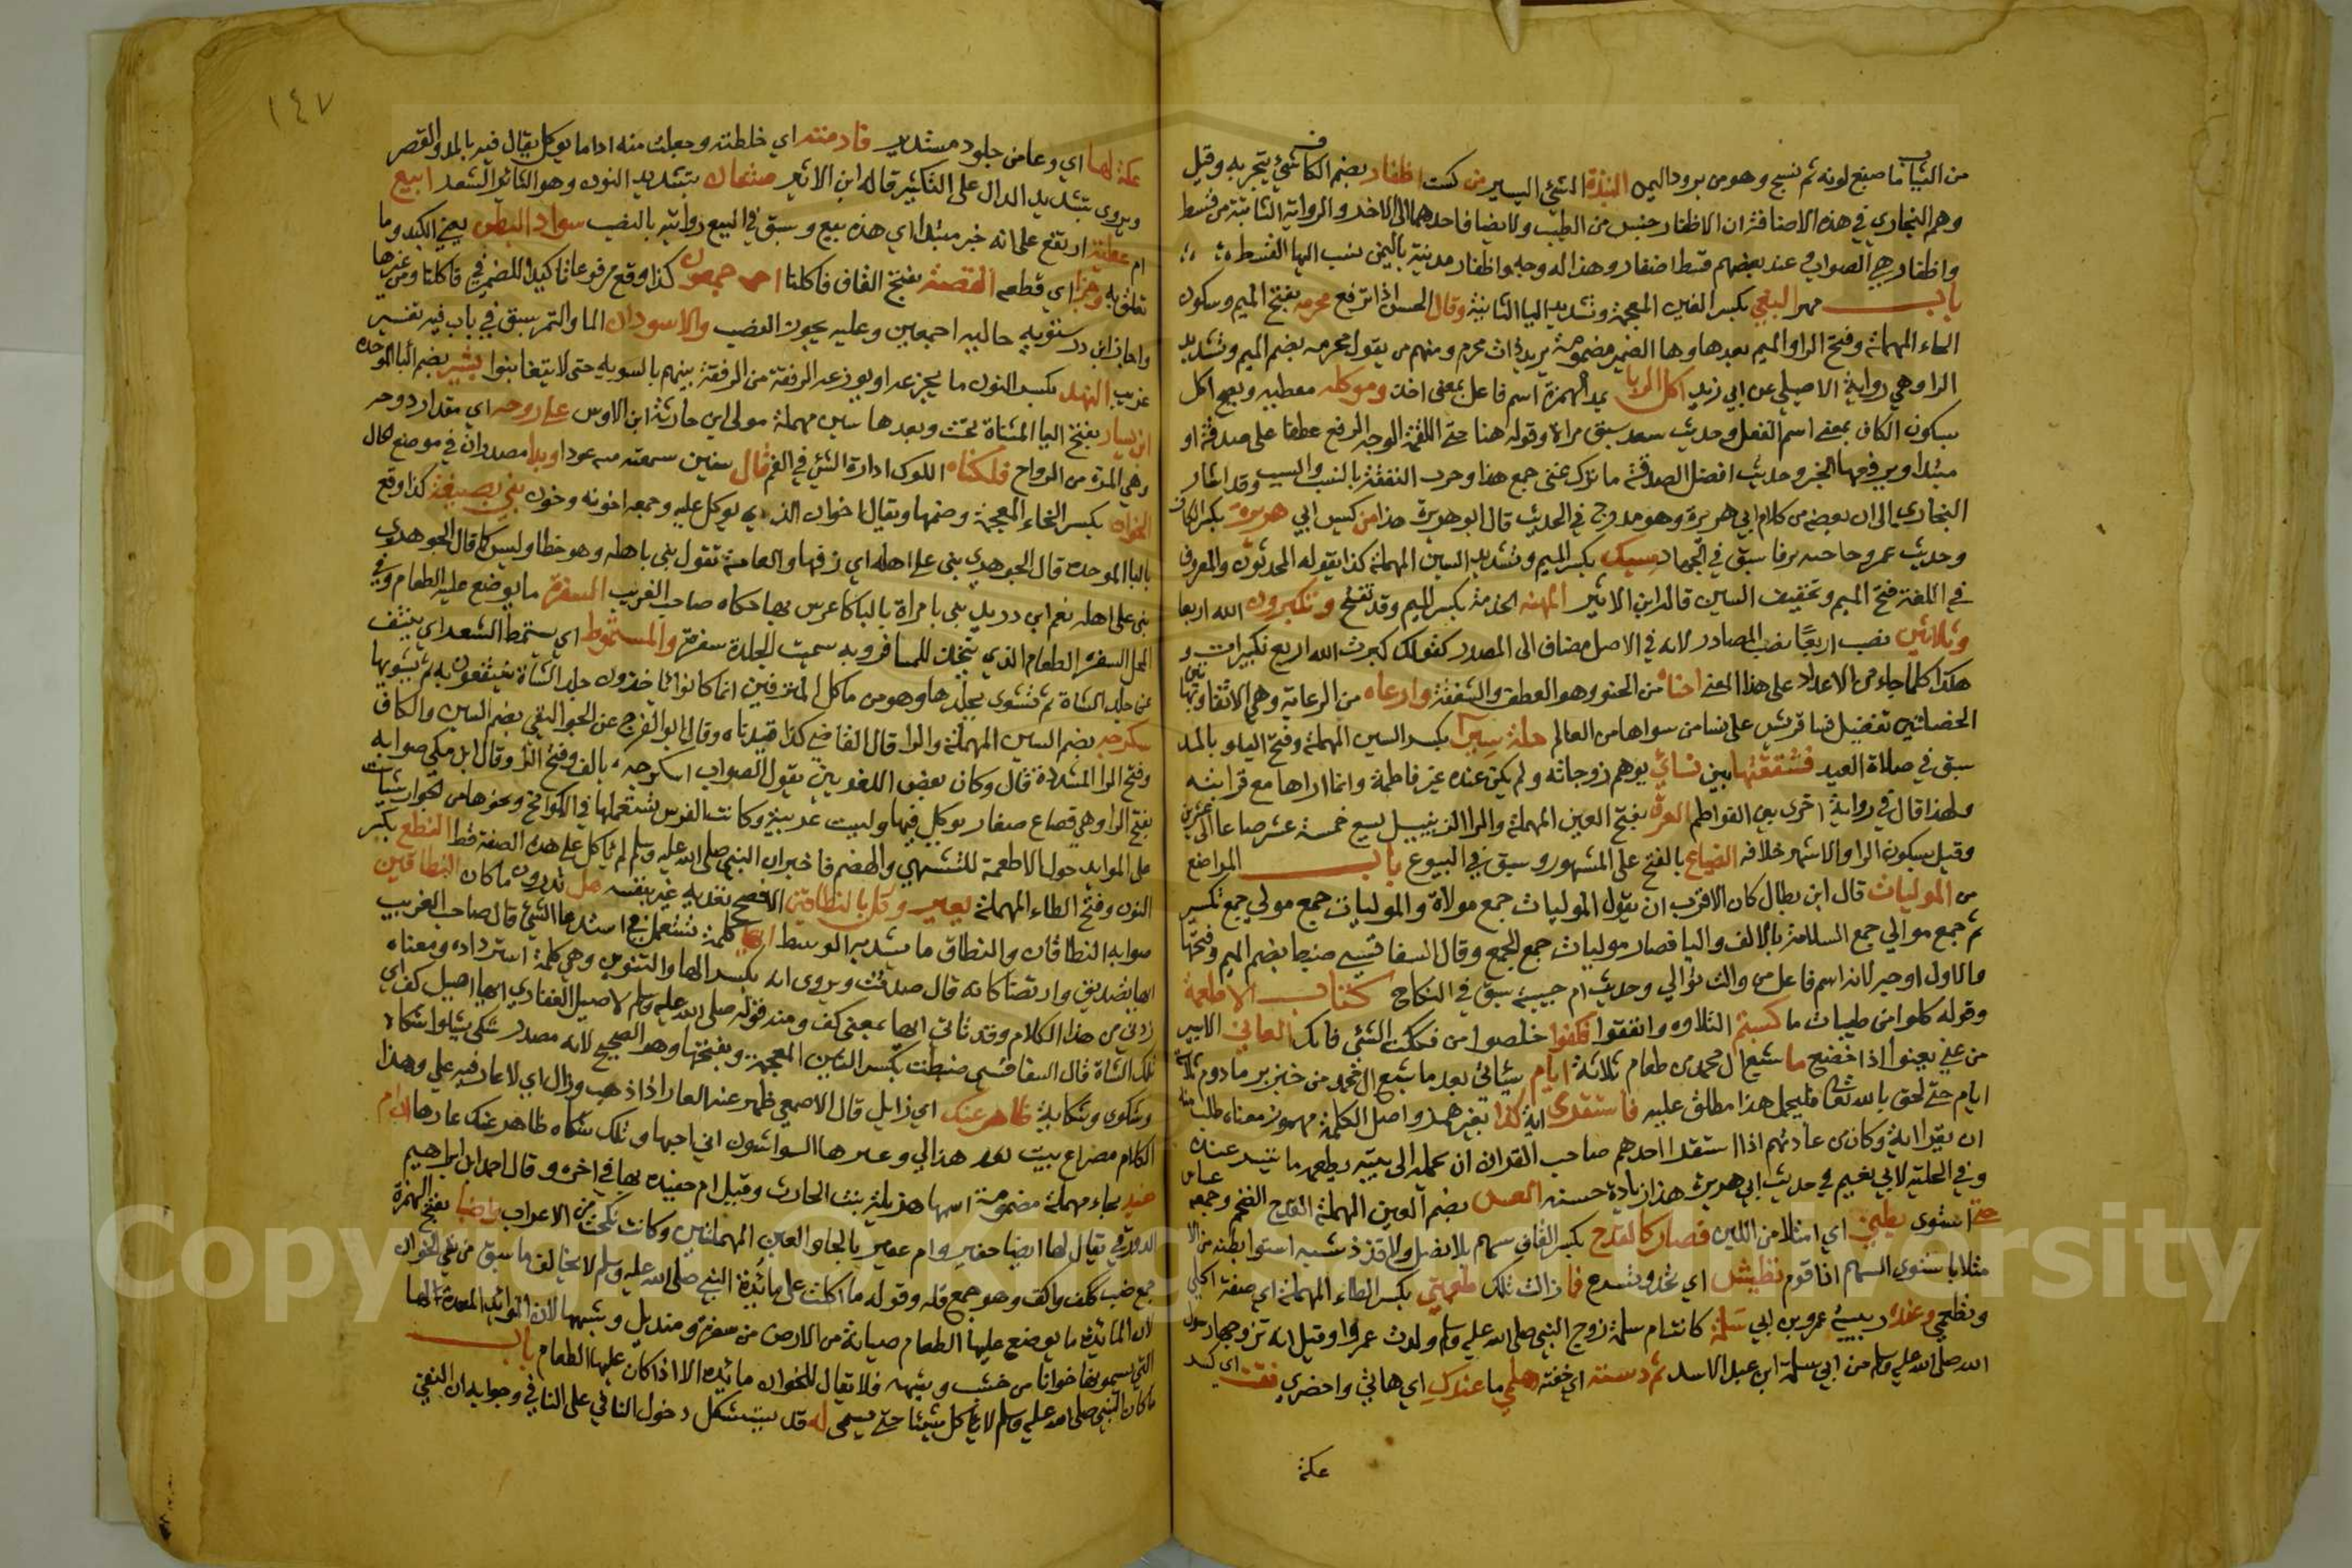 من الثياب ما صبغ لونه ثم نسج وهو من برود اليمن النبذة الشئ اليسير من كست اظفار بضم الكاف شئ يتبخر به وقيل
وهم البخاري في هذه الاضافة لان الاظفار جنس من الطيب ولا يضاف احدهما الى الاخر والرواية الثانية من قسط
واظفار هي الصواب وعند بعضهم قسط اظفار وهذا له وجه واظفار مدينة باليمن ينسب اليها القسط
باب مهر البغي بكسر الغين المعجمة وتشديد اليا الثانية وقال الحسن اذا تزوج محرمه بفتح الميم وسكون
الحاء المهملة وفتح الرا والميم بعدها وها الضمير مضمومة يريد ذات محرم ومنهم من يقول محرمه بضم الميم وتشديد
الرا وهي رواية الاصيلي عن ابي زيد اكل الربا بمد الهمزة اسم فاعل بمعنى اخذ وموكله معطيه ويصح اكل
بسكون الكاف بمعنى اسم الفعل وحديث سعد سبق مرات وقوله هنا حتى اللقمة الوجه الرفع عطفا على صدقة او
مبتدا ويرفعها الخبر وحديث افضل الصدقة ما ترك غنى جمع هذا وحرب النفقة بالنسب والسبب وقد اشار
البخاري الى ان بعضه من كلام ابي هريرة وهو مدرج في الحديث قال ابو هريرة هذا من كيس ابي هريرة بكسر الكاف
وحديث عمر وحاجبه يرفا سبق في الجهاد مسيك بكسر الميم وتشديد السين المهملة كذا يقوله المحدثون والمعروف
في اللغة فتح الميم وتخفيف السين قاله ابن الاثير المهنه الخدمة بكسر الميم وقد تفتح وتكبرون الله اربعا
وثلاثين نصب اربعا نصب المصادر لانه في الاصل مضاف الى المصدر كقولك كبرت الله اربع تكبيرات و
هكذا كلما جاء من الاعداد على هذا المعنى احناه من الحنو وهو العطف والشفقة وارعاه من الرعاية وهي الابقا وبهاتين
الخصلتين تفضيل نسا قريش على نسا من سواها من العالم حلة سيرا بكسر السين المهملة وفتح اليا و بالمد
سبق في صلاة العيد فشققتها بين نسائي يوهم زوجاته ولم يكن عنده غير فاطمة وانما اراها مع قرابته
ولهذا قال في رواية اخرى بين الفواطم العرق بفتح العين المهملة والرا الزنبيل يسع خمسة عشر صاعا الى عشرين
وقيل بسكون الرا والاشهر خلافه الضياع بالفتح على المشهور وسبق في البيوع باب المراضع
من المواليات قال ابن بطال كان الاقرب ان يقول الموليات جمع مولاة والموليات جمع مولى جمع تكسير
ثم جمع موالي جمع السلامة بالالف والتا فصار موليات جمع الجمع وقال السفاقسي ضبط بضم الميم وفتحها
والاول اوجه لانه اسم فاعل من والت توالي وحديث ام حبيبة سبق في النكاح كتاب الاطعمة
وقوله كلوا من طيبات ما كسبتم التلاوه وانفقوا فكفوا خلصوا من فككت الشئ فانك العاني الاسير
من عني يعنوا اذا خضع ما شبع ال محمد من طعام ثلاثة ايام سيأتي بعد ما شبع ال محمد من خبز بر مادوم ثلاثة
ايام حتى لحق بالله تعالى فليحمل هذا مطلق عليه فاستقرى اية كذا بغير همز واصل الكلمة مهموز معناه طلب منه
ان يقرا اية وكان من عادتهم اذا استقرا احدهم صاحب القران ان يحمله الى بيته ويطعمه ما تيسر عنده
وفي الحلية لابي نعيم في حديث ابي هريرة هذا زيادة حسنه العس بضم العين المهملة القدح الضخم وجمعه عساس
حتى استوى بطني اي امتلا من اللبن فصار كالقدح بكسر القاف سهم بلا نصل ولا قذذ شبه استوا بطنه من الا
متلا باستوي السهم اذا قوم تطيش اي تخف وتسرع فما زالت تلك طعمتي بكسر الطاء المهملة اي صفة اكلي
وتطعمي وعند ربيبه عمر بن ابي سلمة كانت ام سلمة زوج النبي صلى الله عليه وسلم ولدت عمرا وقيل انه تزوجها رسول
الله صلى الله عليه وسلم من ابي سلمة ابن عبد الاسد ثم دسته اي خفته هلمي ما عندك اي هاتي واحضري ففت اي كسر
عكة
١٤٧
عكة لها اي وعا من جلود مستدير فادمته اي خلطته وجعلت منه اداما يوكل يقال فيه بالمد والقصر
ويروى بتشديد الدال على التكثير قاله ابن الاثير مشعان بتشديد النون وهو الثائر الشعر ابيع
ام عطية ارتفع على انه خبر مبتدا اي هذه بيع وسبق في البيع روايته بالنصب سواد البطن يعني الكبد وما
تعلق به وحز اي قطع القصعة بفتح القاف فاكلنا اجمعون كذا وقع مرفوعا تاكيدا للضمير في فاكلنا ومن غيرها
واجاز ابن درستويه حاليه اجمعين وعليه يجوز النصب والاسودان الما والتمر سبق في باب فيه تفسير
غريب النهد بكسر النون ما يخرجه الرفقة من الرفقة بينهم بالسويه حتى لا يتغابنوا بشير بضم البا الموحده
ابن يسار بفتح اليا المثناة تحت وبعدها سين مهملة مولى ابن حارثة ابن الاوس على روحه اي مقدار روحه
وهي المرة من الرواح فلكناه اللوك ادارة الشئ في الفم قال سفين سمعته منه عودا وبدا مصدران في موضع الحال
الخوان بكسر الخاء المعجمة وضمها ويقال اخوان الذي يوكل عليه وجمعه اخونه وخون بني بصفية كذا وقع
بالبا الموحده قال الجوهري بنى على اهله اي زفها والعامة تقول بنى باهله وهو خطا وليس كما قال الجوهري
بنى على اهله نعم ابن دريد بنى بامراة بالبا كاعرس بها حكاه صاحب الغريب السفرة ما يوضع عليه الطعام وفي
المحل السفره الطعام الذي يتخذ للمسافر وبه سميت الجلدة سفرة والمسموط اي يسمط الشعر اي ينتف
من جلد الشاة ثم تشوى بجلدها وهو من ماكل المترفين انما كانوا ياخذون جلد الشاة ينتفعون به ثم يشويها
سكرجه بضم السين المهملة والرا قال القاضي كذا قيدناه وقال ابو الفرج عن الجواليقي بضم السين والكاف
وفتح الرا المشددة قال وكان بعض اللغويين يقول الصواب اسكرجه بالف وفتح الرا وقال ابن مكي صوابه
بفتح الرا وهي قصاع صغار يوكل فيها وليست عربية وكانت الفرس تستعملها في الكوامخ ونحوها من الجوارشيات
على الموايد حول الاطعمة للتشهي والهضم فاخبران النبي صلى الله عليه وسلم لم ياكل على هذه الصفة قط النطع بكسر
النون وفتح الطاء المهملة يعير وك بالنطاقين الافصح تعديه غير بنفسه هل تدرون ما كان النطاقين
صوابه النطاقان والنطاق ما يشد به الوسط ايها كلمة تستعمل في استدعا الشئ قال صاحب الغريب
ايها تصديق وارتضا كانه قال صدقت ويروى ايه بكسر الها والتنوين وهي كلمة استزداده ومعناه
زدني من هذا الكلام وقد تاتي ايها بمعنى كف ومنه قوله صلى الله عليه وسلم لاصيل الغفاري ايها اصيل كف اي
تلك الشاة قال السفاقسي ضبطت بكسر الشين المعجمة وبفتحها وهو الصحيح لانه مصدر شكى يشكوا شكاة
وشكوى وشكاية ظاهر عنك اي زايل قال الاصمعي ظهر عنه العار اذا ذهب وزال اي لا عار فيه علي وهذا
الكلام مصراع بيت لابي ذويب الهذلي وعيرها الواشون اني احبها وتلك شكاة ظاهر عنك عارها ام
حفيد بحاء مهملة مضمومة اسمها هذيلة بنت الحارث وقيل ام حفيده بها في اخره وقال احمد ابن ابراهيم
الدورقي يقال لها ايضا حفير وام عفير بالحا والعين المهملتين وكانت نكحت من الاعراب واضبا بفتح الهمزة
جمع ضب ككف واكف وهو جمع قله وقوله ما اكلت على مائدة النبي صلى الله عليه وسلم لا يخالف ما سبق من نفي الخوان
لان المائدة ما يوضع عليها الطعام صيانة من الارض من سفرة ومنديل وشبهها لان الموائد المعدة لها
التي يسمونها خوانا من خشب وشبهه فلا يقال للخوان مائدة الا اذا كان عليها الطعام باب
ما كان النبي صلى الله عليه وسلم لا ياكل شيئا حتى يسمى له قد يستشكل دخول النافي على النافي وجوابه ان النفي